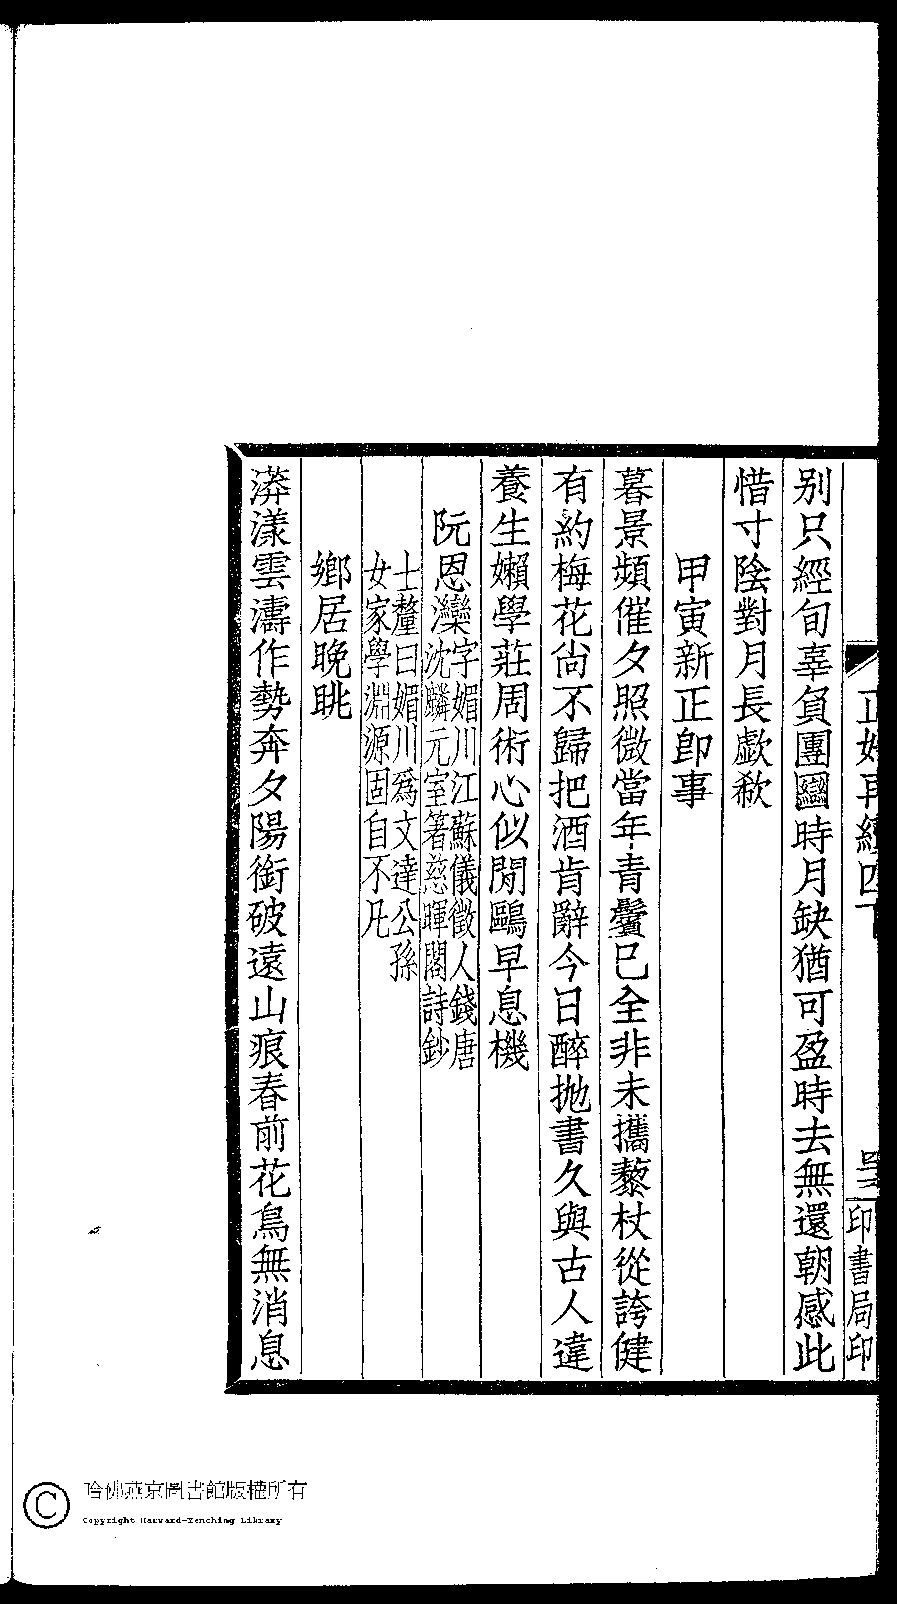 别只經旬辜負團圞時月缺猶可盈時去無還朝感此
惜寸陰對月長歔欷
甲寅新正卽事
暮景頻催夕照微當年青鬢已全非未攜藜杖從誇健
有約梅花尙不歸把酒肯辭今日醉抛書久與古人違
養生嬾學莊周術心似閒鷗早息機
阮恩灤字媚川江蘇儀徵人錢唐
沈麟元室箸慈暉閣詩鈔
士釐曰媚川爲文達公孫
女家學淵源固自不凡
鄉居晚眺
漭漾雲濤作勢奔夕陽銜破遠山痕春前花鳥無消息
印書局印
哈佛燕京圖書館版權所有
Copyright Harvard-Yenching Library